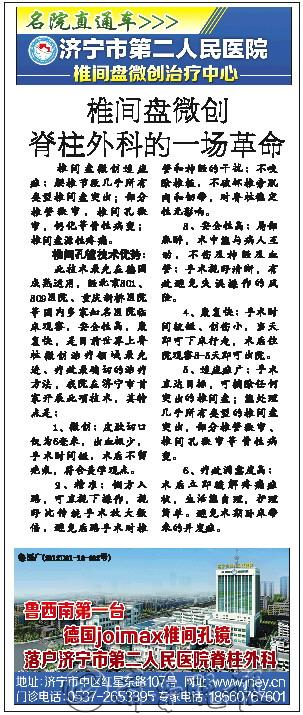 名院直通车>>>
济宁市第二人民医院
椎间盘微创治疗中心
椎间盘微创
脊柱外科的一场革命
椎间盘微创适应
症：腰椎节段几乎所有
类型椎间盘突出；部分
椎管狭窄，椎间孔狭
窄，钙化等骨性病变；
椎间盘源性疼痛。
椎间孔镜技术优势：
此技术最先在德国
成熟运用，经北京301、
309医院、重庆新桥医院
等国内多家知名医院临
床观察，安全性高，康
复快，是目前世界上脊
柱微创治疗领域最先
进、疗效最确切的治疗
方法，我院在济宁市首
家开展此项技术，其特
点是：
1、微创：皮肤切口
仅为6毫米，出血极少，
手术时间短，术后不留
疤痕，符合美学观点。
2、精准：侧方入
路，可直视下操作，视
野比传统手术放大数
倍，避免后路手术对椎
管和神经的干扰；不咬
除椎板，不破坏椎旁肌
肉和韧带，对脊柱稳定
性无影响。
3、安全性高：局部
麻醉，术中能与病人互
动，不伤及神经及血
管；手术视野清晰，有
效避免失误操作的风
险。
4、康复快：手术时
间较短、创伤小，当天
即可下床行走，术后住
院观察3-5天即可出院。
5、适应症广：手术
直达目标，可摘除任何
突出的椎间盘；能处理
几乎所有类型的椎间盘
突出，部分椎管狭窄、
椎间孔狭窄等骨性病
变。
6、疗效满意度高：
术后立即缓解疼痛症
状，生活能自理，护理
简单。避免术期卧床带
来的并发症。
鲁西南第一台
德国joimax椎间孔镜
落户济宁市第二人民医院脊柱外科
地址：济宁市中区红星东路107号 网址：www.jney.cn
门诊电话：0537-2653395 专家电话：18660767601